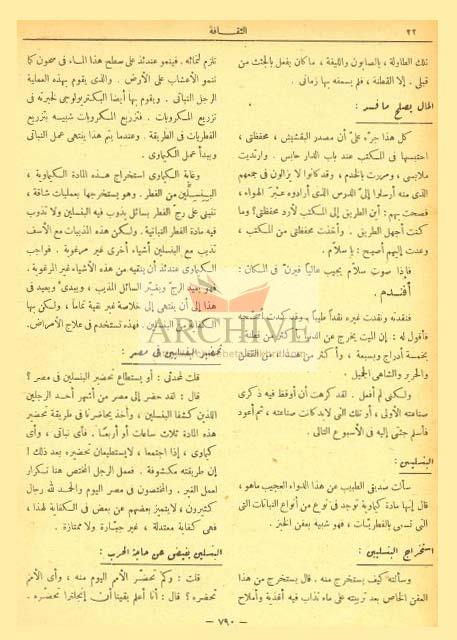 ٢٢
الثقافة
تلك الطاولة ، بالصابون والليفة ، ما كان يفعل بالجثث من
قبلى . إلا القطنة ، فلم يسعفه بها زمانى .
المال يصلح ما فسد :
كل هذا جرى على أن مصدر البقشيش ، محفظتى ،
احتبسها فى المكتب عند باب الدار حابس . وارتديت
ملابسى ، ومررت بالخدم ، وقد كانوا لا يزالون فى جمعهم
الذى منه أرسلوا إلى الدرس الذى أرادوه عبر الهواء ،
فصحت بهم : أين الطريق إلى المكتب لأرد محفظتى ؟ وما
كنت أجهل الطريق . وأخذت محفظتى من المكتب ،
وعدت إليهم أصيح : يا سلام .
فإذا صوت سلام يجيب عالياً فيرن فى المكان :
أفندم .
فنقدته ونقدت غيره نقداً طيباً ،
فأقول له : إن الميت يخرج عن الدنيا
بخمسة أدراج وبسبعة ، وأكثر من هذا من القطن
والحرير والشاهى الجميل .
ولكنى لم أفعل . لقد كرهت أن أوقظ فيه ذكرى
صناعته الأولى ، أو تلك التى لا بد كانت صناعته ، ثم أعود
فأسلم جثتى إليه فى الأسبوع التالى .
البنسلين :
سألت صديقى الطبيب عن هذا الدواء العجيب ما هو ،
قال إنها مادة كيماوية توجد فى نوع من أنواع النباتات التى
تسمى بالفطريات ، فهو شبيه بعفن الخبز .
استخراج البنسلين :
وسألته كيف يستخرج منه . قال يستخرج من هذا
العفن الخاص بعد تربيته على ماء تذاب فيه أغذية وأملاح
تلزم لنمائه . فينمو عندئذ على سطح هذا الماء فى صحون كما
تنمو الأعشاب على الأرض . والذى يقوم بهذه العملية
الرجل النباتى . ويقوم بها أيضا البكتريولوجى لخبرته فى
تزريع المكروبات . فتزريع المكروبات شبيه بتزريع
الفطريات فى الطريقة . وعندما يتم هذا ينتهى عمل النباتى
ويبدأ عمل الكيماوى .
وغاية الكيماوى استخراج هذه المادة الكيماوية ،
البنسلين من الفطر . وهو يستخرجها بعمليات شاقة ،
تنبنى على رج الفطر بسائل يذوب فيه البنسلين ولا تذوب
فيه مادة الفطر النباتية . ولكن هذه المذيبات مع الأسف
تذيب مع البنسلين أشياء أخرى غير مرغوبة . فواجب
الكيماوى عندئذ أن ينقيه من هذه الأشياء غير المرغوبة .
فهو يعيد الرج ويغير السائل المذيب ، ويبدى ويعيد فى
هذا إلى أن ينتهى إلى خلاصة غير نقية تماماً ، ولكن بها
الكفاية من البنسلين . فهذه تستخدم فى علاج الأمراض .
تحضير البنسلين فى مصر :
قلت لمحدثى : أو يستطاع تحضير البنسلين فى مصر ؟
قال : لقد حضر إلى مصر من أشهر أحد الرجلين
اللذين كشفا البنسلين ، وأخذ يحاضرنا فى طريقة تحضير
هذه المادة ثلاث ساعات أو أربعا . فأى نباتى ، وأى
كيماوى ، إذا اجتمعا ، لا يستطيعان تحضيره بعد ذلك !
إن طريقته مكشوفة . فعمل الرجل المختص هنا تكرار
لعمل الغير . والمختصون فى مصر اليوم والحمد لله رجال
كثيرون ، لا يتميز بعضهم عن بعض فى الكفاية لهذا ،
فهى كفاية معتدلة ، غير جبارة ولا ممتازة .
البنسلين يفيض عن حاجة الحرب :
قلت : وكم تحضر الأمم اليوم منه ، وأى الأمم
تحضره ؟ قال : أنا أعلم يقينا أن إنجلترا تحضره .
— ٧٩٠ —
ARCHIVE